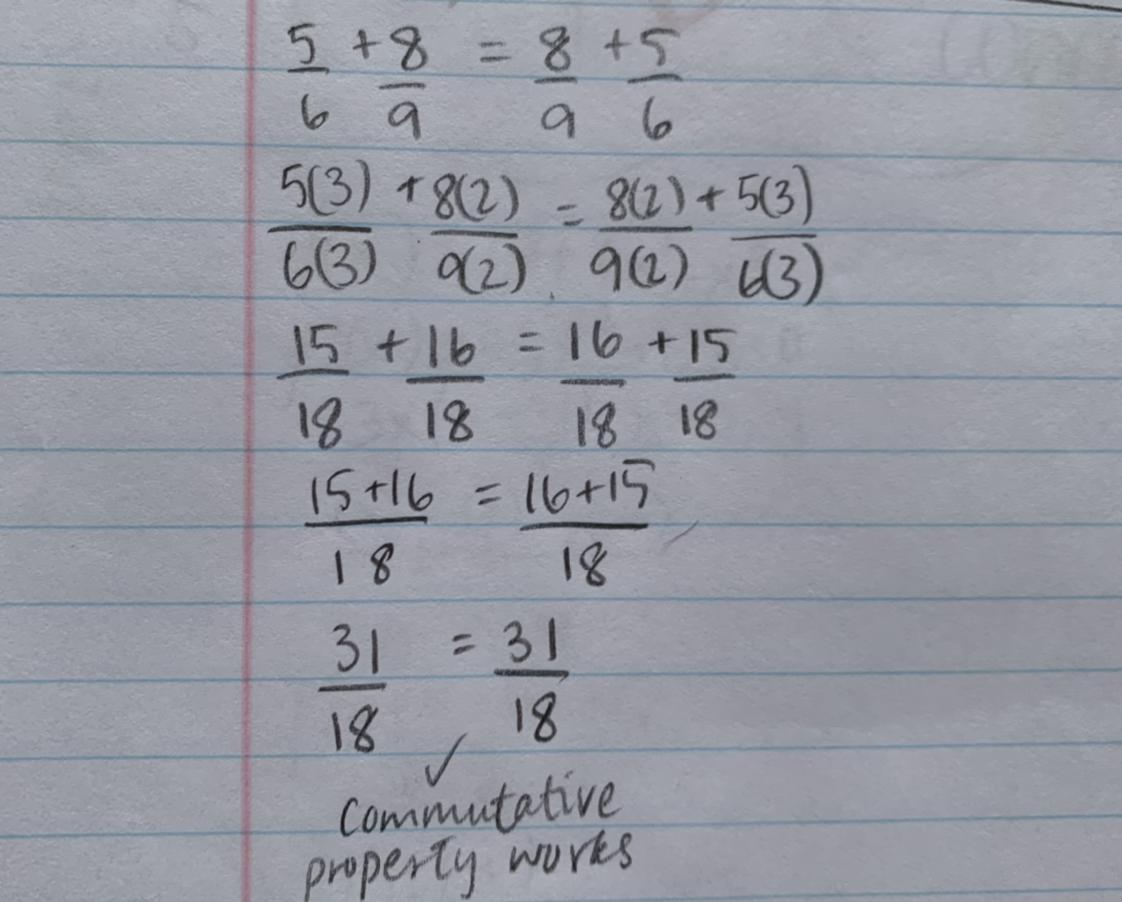 5/6 + 8/9 = 8/9 + 5/6
5(3)/6(3) + 8(2)/9(2) = 8(2)/9(2) + 5(3)/6(3)
15/18 + 16/18 = 16/18 + 15/18
15+16/18 = 16+15/18
31/18 = 31/18
✓
Commutative
property works